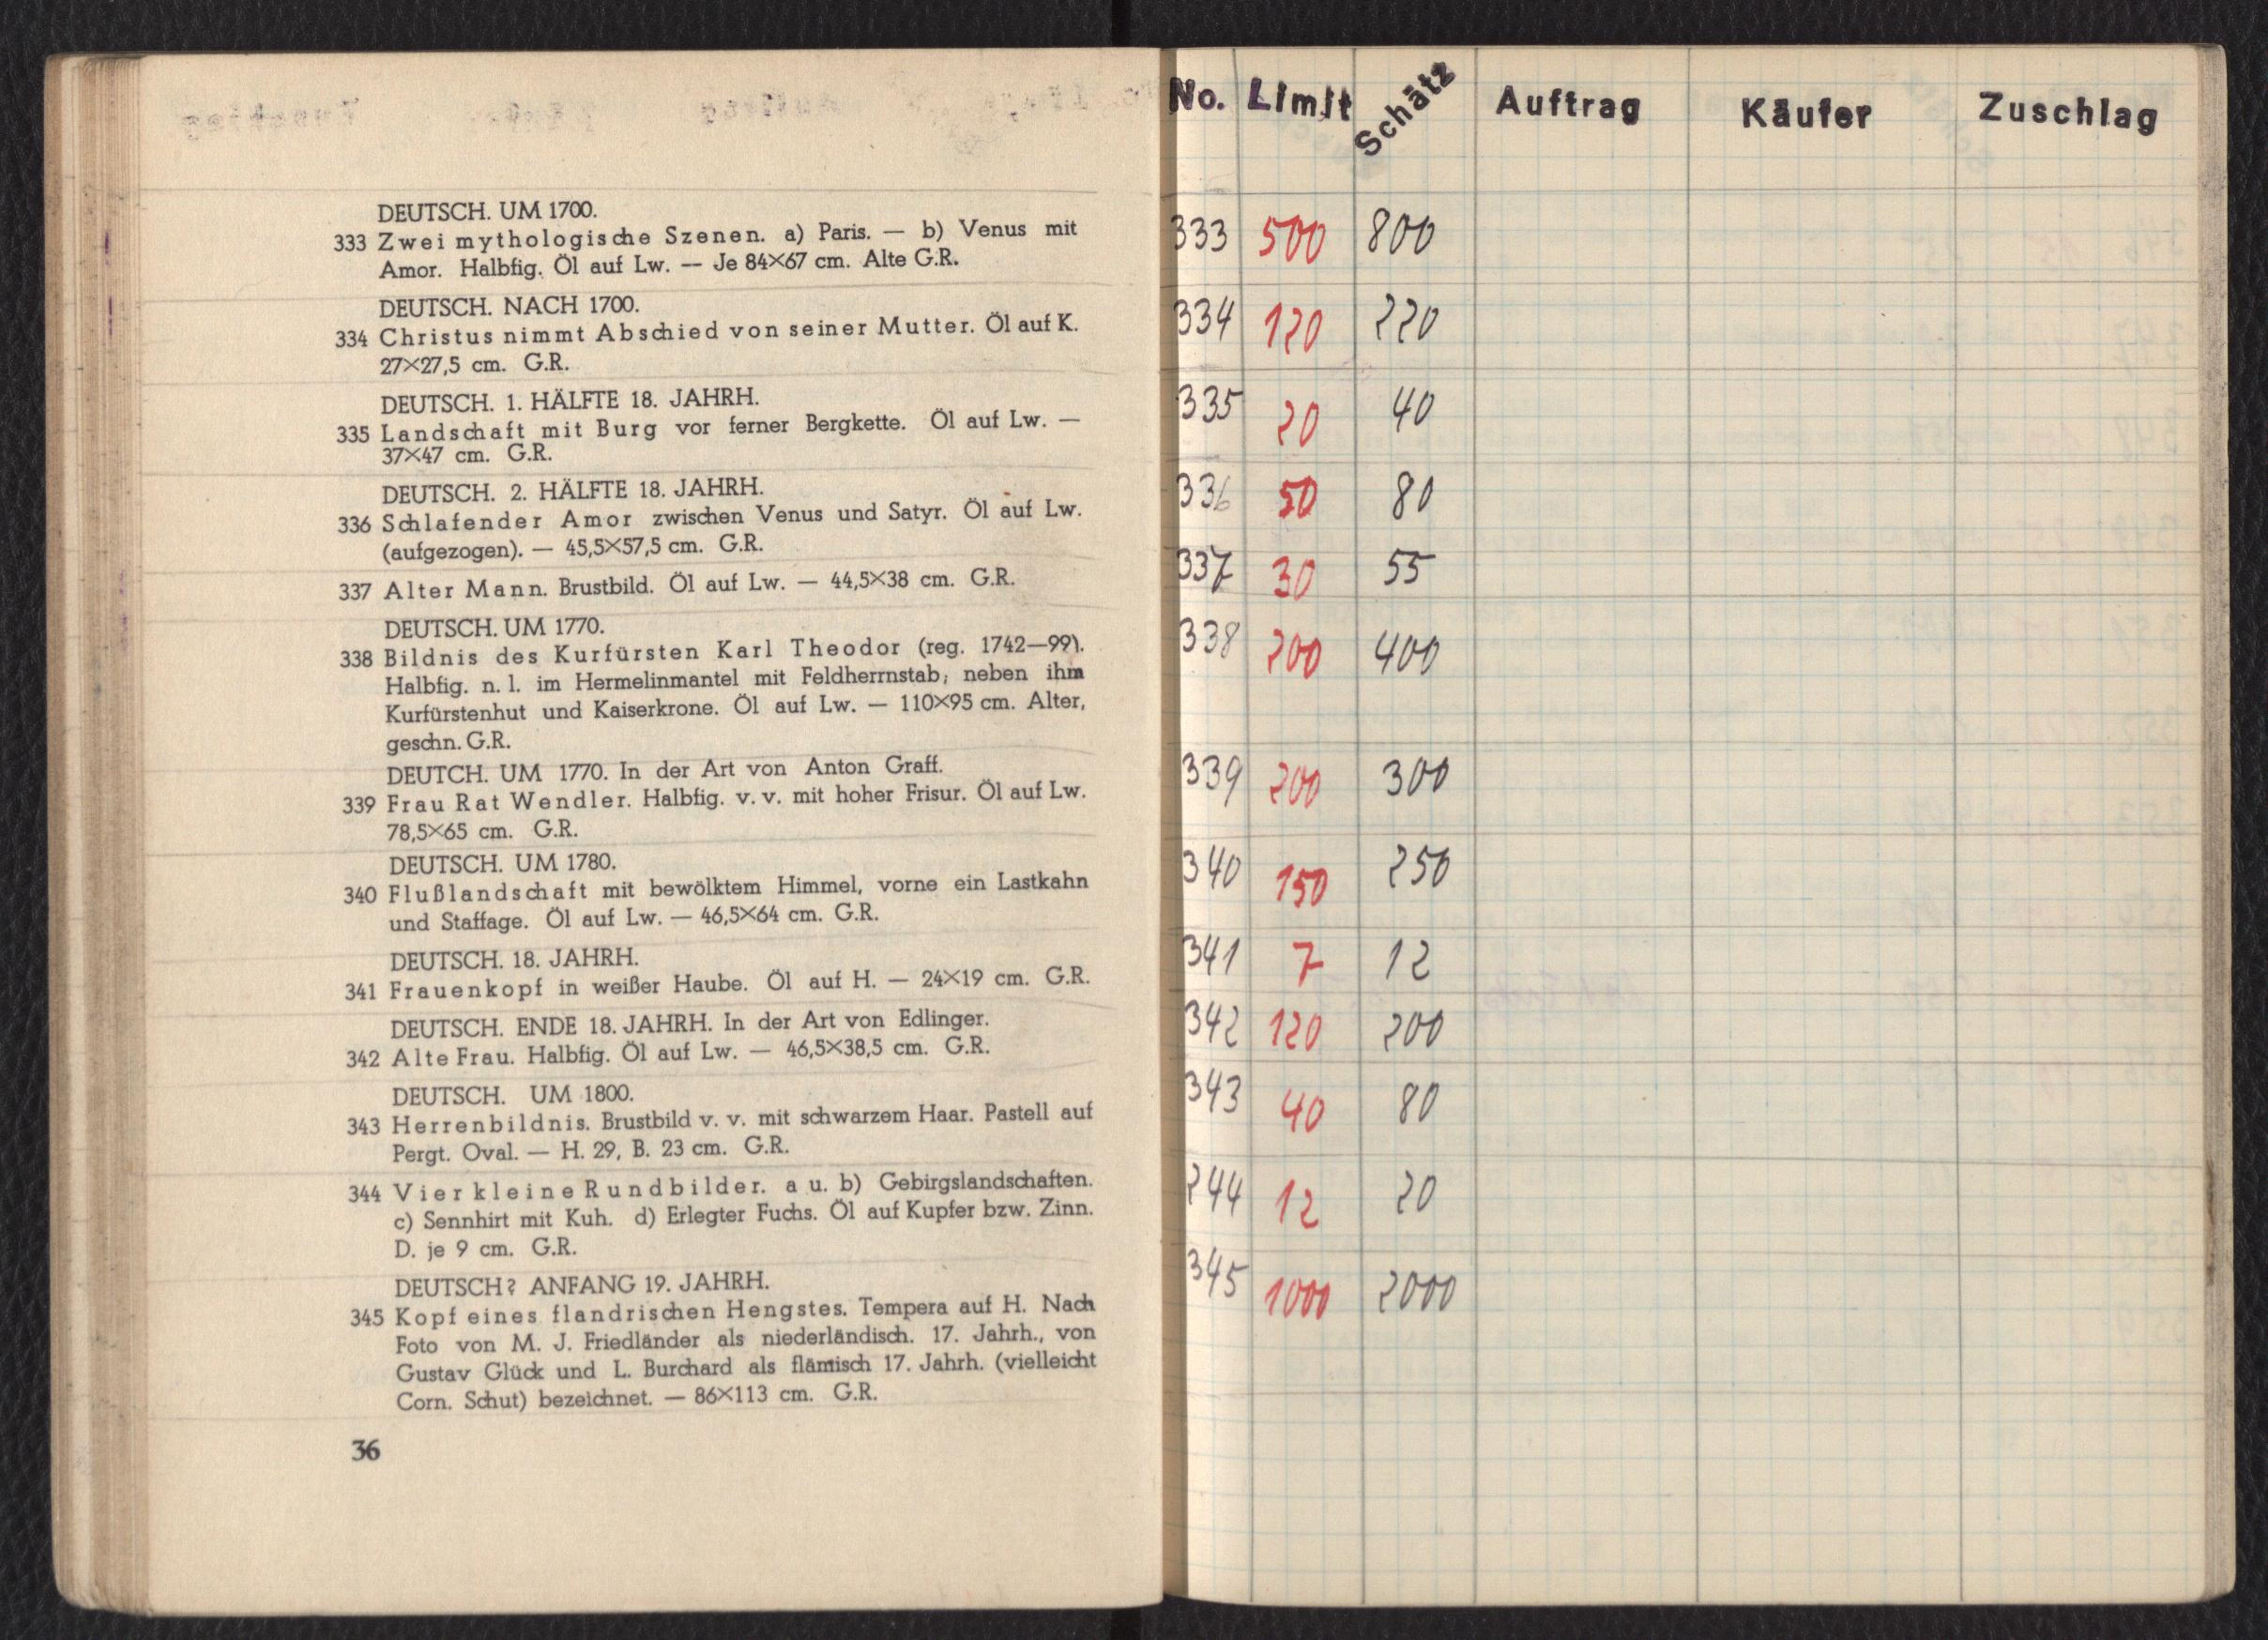 DEUTSCH. UM 1700.
333 Zwei mythologische Szenen. a) Paris. — b) Venus mit
Amor. Halbfig. Öl auf Lw. — Je 84×67 cm. Alte G.R.
DEUTSCH. NACH 1700.
334 Christus nimmt Abschied von seiner Mutter. Öl auf K.
27×27,5 cm. G.R.
DEUTSCH. 1. HÄLFTE 18. JAHRH.
335 Landschaft mit Burg vor ferner Bergkette. Öl auf Lw. —
37×47 cm. G.R.
DEUTSCH. 2. HÄLFTE 18. JAHRH.
336 Schlafender Amor zwischen Venus und Satyr. Öl auf Lw.
(aufgezogen). — 45,5×57,5 cm. G.R.
337 Alter Mann. Brustbild. Öl auf Lw. — 44,5×38 cm. G.R.
DEUTSCH. UM 1770.
338 Bildnis des Kurfürsten Karl Theodor (reg. 1742—99).
Halbfig. n. l. im Hermelinmantel mit Feldherrnstab; neben ihm
Kurfürstenhut und Kaiserkrone. Öl auf Lw. — 110×95 cm. Alter,
geschn. G.R.
DEUTCH. UM 1770. In der Art von Anton Graff.
339 Frau Rat Wendler. Halbfig. v. v. mit hoher Frisur. Öl auf Lw.
78,5×65 cm. G.R.
DEUTSCH. UM 1780.
340 Flußlandschaft mit bewölktem Himmel, vorne ein Lastkahn
und Staffage. Öl auf Lw. — 46,5×64 cm. G.R.
DEUTSCH. 18. JAHRH.
341 Frauenkopf in weißer Haube. Öl auf H. — 24×19 cm. G.R.
DEUTSCH. ENDE 18. JAHRH. In der Art von Edlinger.
342 Alte Frau. Halbfig. Öl auf Lw. — 46,5×38,5 cm. G.R.
DEUTSCH. UM 1800.
343 Herrenbildnis. Brustbild v. v. mit schwarzem Haar. Pastell auf
Pergt. Oval. — H. 29, B. 23 cm. G.R.
344 Vier kleine Rundbilder. a u. b) Gebirgslandschaften.
c) Sennhirt mit Kuh. d) Erlegter Fuchs. Öl auf Kupfer bzw. Zinn.
D. je 9 cm. G.R.
DEUTSCH? ANFANG 19. JAHRH.
345 Kopf eines flandrischen Hengstes. Tempera auf H. Nach
Foto von M. J. Friedländer als niederländisch. 17. Jahrh., von
Gustav Glück und L. Burchard als flämisch 17. Jahrh. (vielleicht
Corn. Schut) bezeichnet. — 86×113 cm. G.R.
36
No. Limit Schätz Auftrag Käufer Zuschlag
333 500 800
334 120 220
335 20 40
336 50 80
337 30 55
338 200 400
339 200 300
340 150 250
341 7 12
342 120 200
343 40 80
244 12 20
345 1000 2000